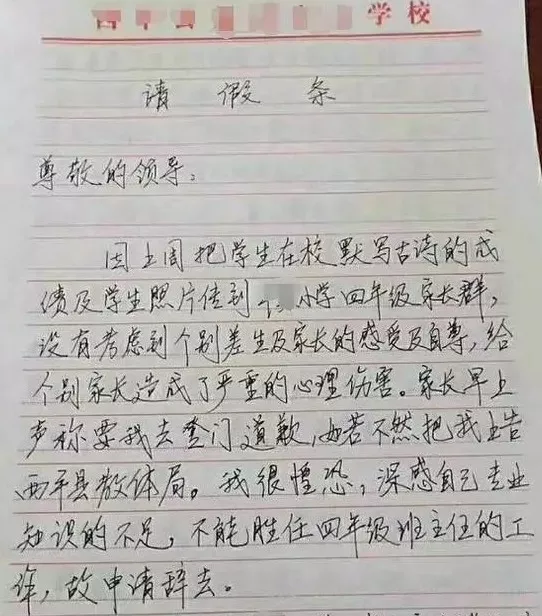 学校
请假条
尊敬的领导：
因上周把学生在校默写古诗的成
绩及学生照片传到小学四年级家长群，
没有考虑到个别差生及家长的感受及自尊，给
个别家长造成了严重的心理伤害。家长早上
声称要我去登门道歉，如若不然把我上告
西平县教体局。我很惶恐，深感自己专业
知识的不足，不能胜任四年级班主任的工
作，故申请辞去。